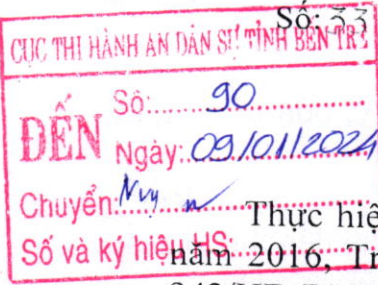 Số: 33
CỤC THI HÀNH ÁN DÂN SỰ TỈNH BẾN TRE
ĐẾN
Số: 90
Ngày: 09/01/2024
Chuyển:
Số và ký hiệu HS:
Thực hiệ
năm 2016, Tr